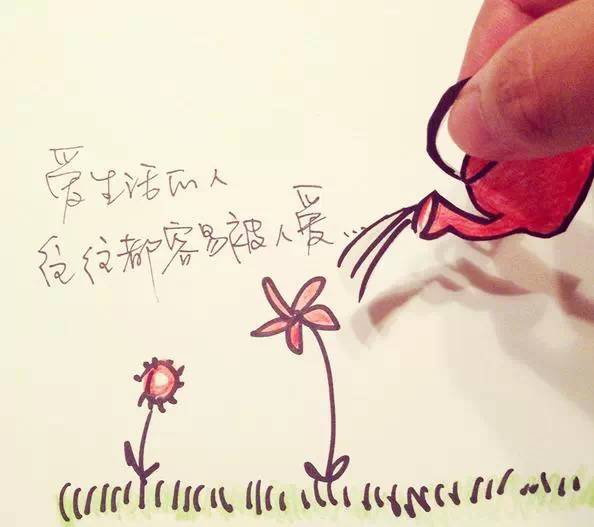 爱生活的人
往往都容易被人爱...